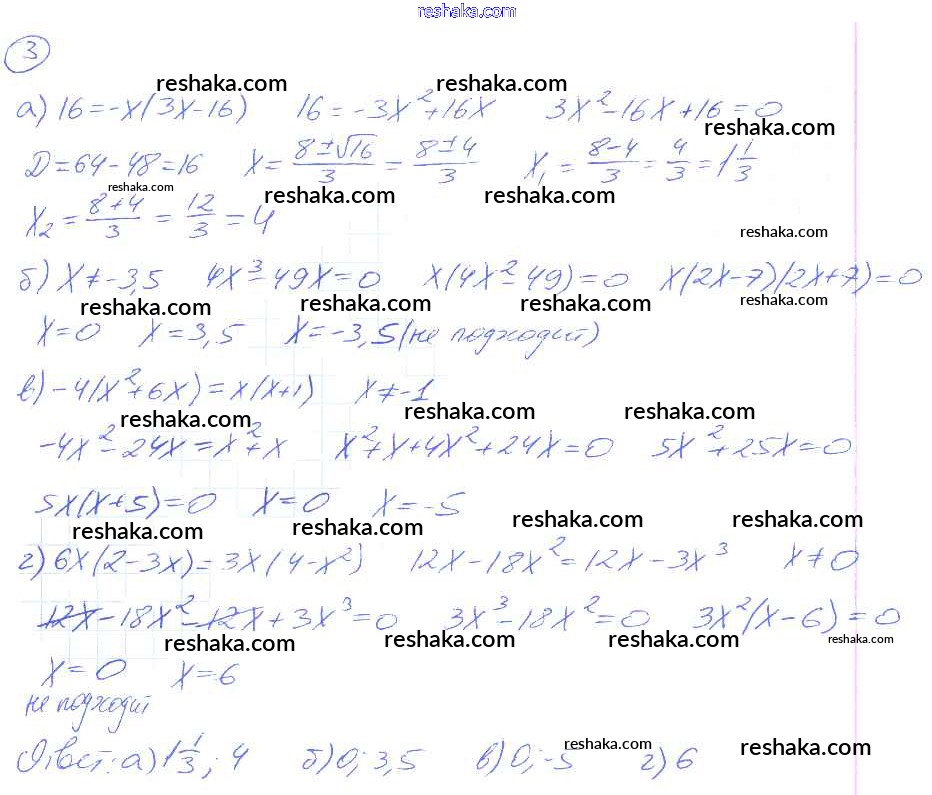 reshaka.com
3
reshaka.com reshaka.com
а) 16=-x(3x-16) 16=-3x²+16x 3x²-16x+16=0
reshaka.com
D=64-48=16 x=(8±√16)/3=(8±4)/3 x₁=(8-4)/3=4/3=1 1/3
reshaka.com reshaka.com reshaka.com
x₂=(8+4)/3=12/3=4
reshaka.com
б) x≠-3,5 4x³-49x=0 x(4x²-49)=0 x(2x-7)(2x+7)=0
reshaka.com reshaka.com reshaka.com reshaka.com
x=0 x=3,5 x=-3,5(не подходит)
в) -4(x²+6x)=x(x+1) x≠-1
reshaka.com reshaka.com reshaka.com
-4x²-24x=x²+x x²+x+4x²+24x=0 5x²+25x=0
5x(x+5)=0 x=0 x=-5
reshaka.com reshaka.com reshaka.com reshaka.com
г) 6x(2-3x)=3x(4-x²) 12x-18x²=12x-3x³ x≠0
12x-18x²-12x+3x³=0 3x³-18x²=0 3x²(x-6)=0
reshaka.com reshaka.com reshaka.com reshaka.com
x=0 x=6
не подходит
Ответ: а) 1 1/3; 4 б) 0; 3,5 в) 0; -5 г) 6
reshaka.com reshaka.com